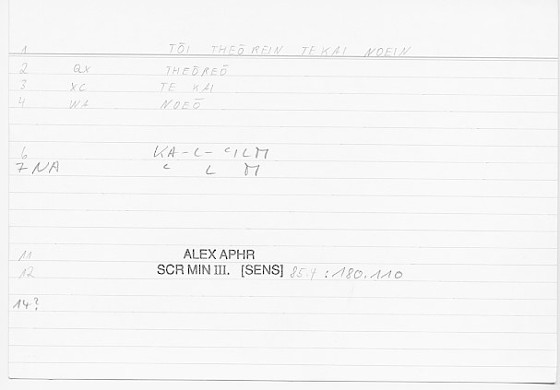 1 TŌI THEŌREIN TE KAI NOEIN
2 QX THEŌREŌ
3 XC TE KAI
4 WA NOEŌ
6 KA-L- ʿILM
7 NA ʿ L M
11 ALEX APHR
12 SCR MIN III. [SENS] 85.4 : 180.110
14?